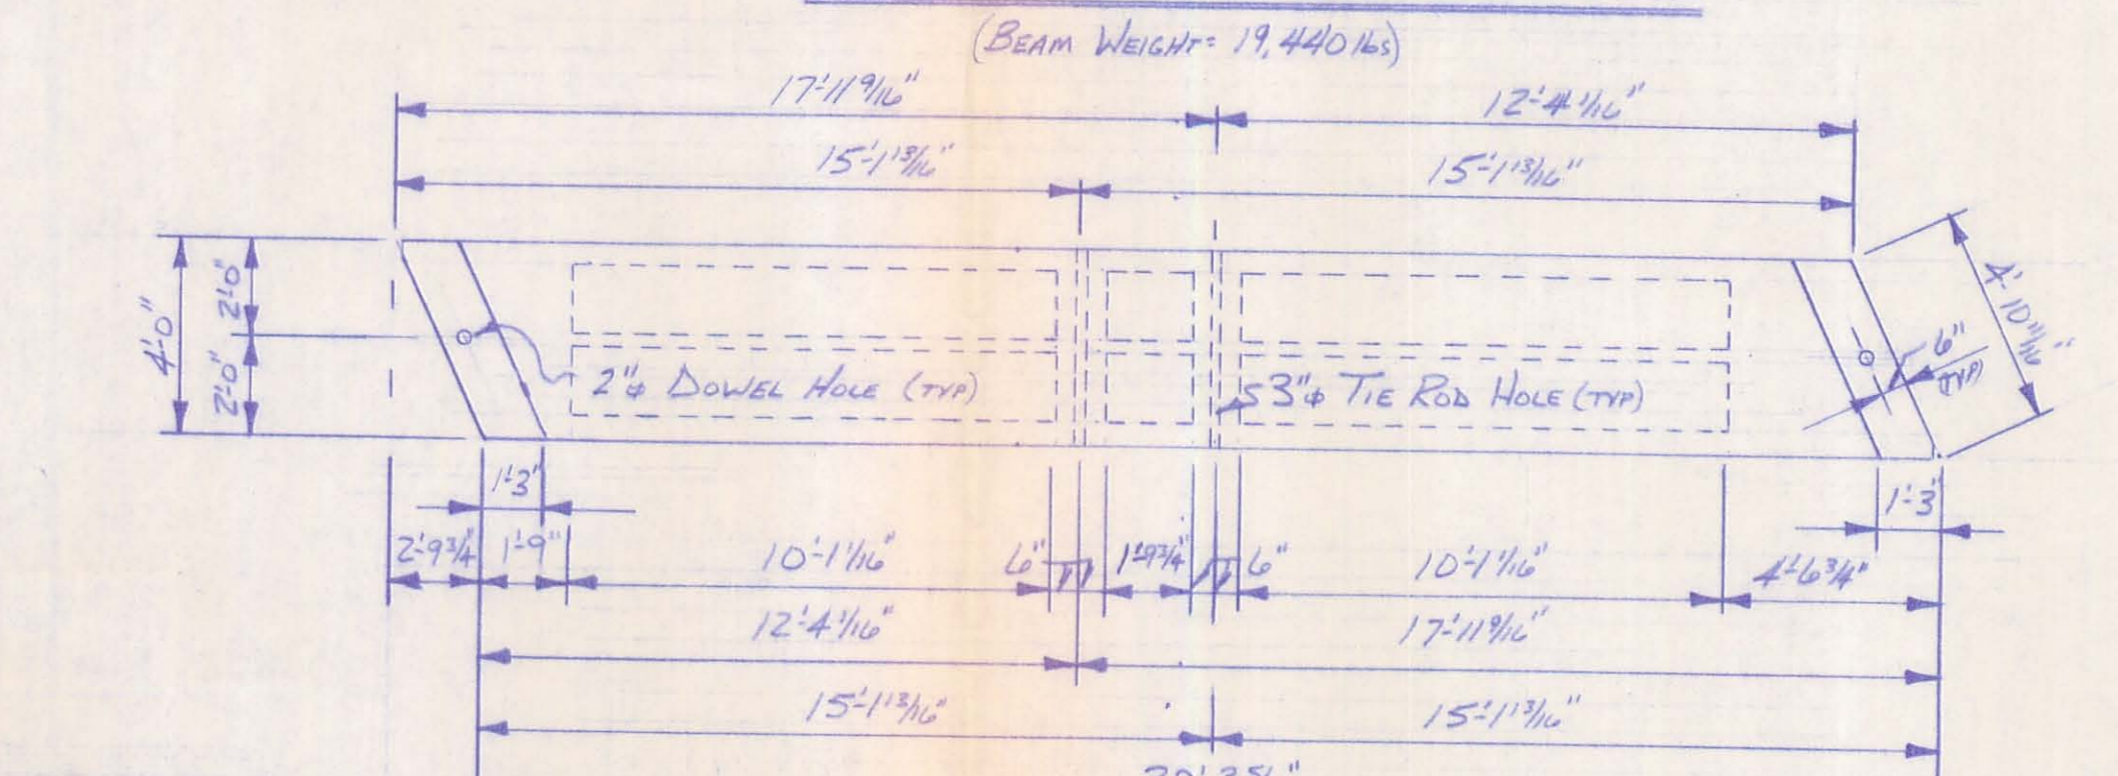 (BEAM WEIGHT= 19,440 lbs)
17'-11 9/16"
12'-4 1/16"
15'-1 13/16"
15'-1 13/16"
4'-0"
2'-0"
2'-0"
4'-10 11/16"
6"
(TYP)
2"φ DOWEL HOLE (TYP)
3"φ TIE ROD HOLE (TYP)
1'-3"
1'-3"
2'-9 3/4"
1'-9"
10'-1 1/16"
6"
1'-9 3/4"
6"
10'-1 1/16"
4'-6 3/4"
12'-4 1/16"
17'-11 9/16"
15'-1 13/16"
15'-1 13/16"